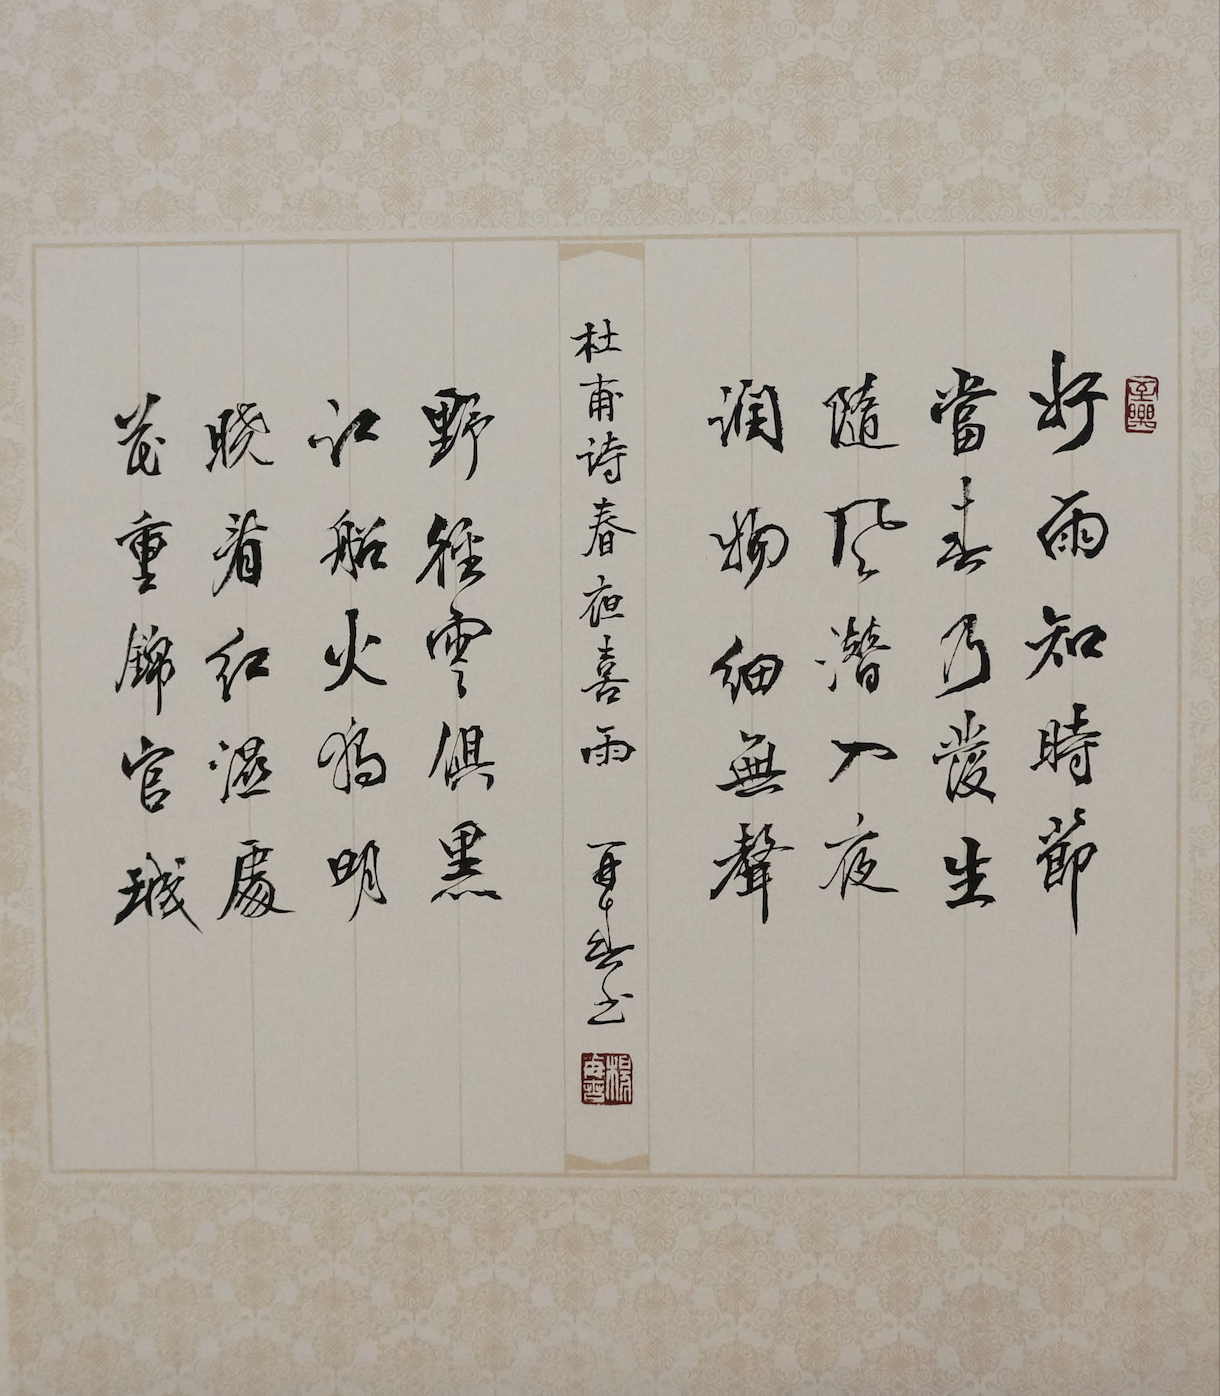 至樂
好雨知時節
當春乃發生
隨風潛入夜
潤物細無聲
杜甫詩春夜喜雨 再春书
楊再春
野徑雲俱黑
江船火獨明
曉看紅濕處
花重錦官城